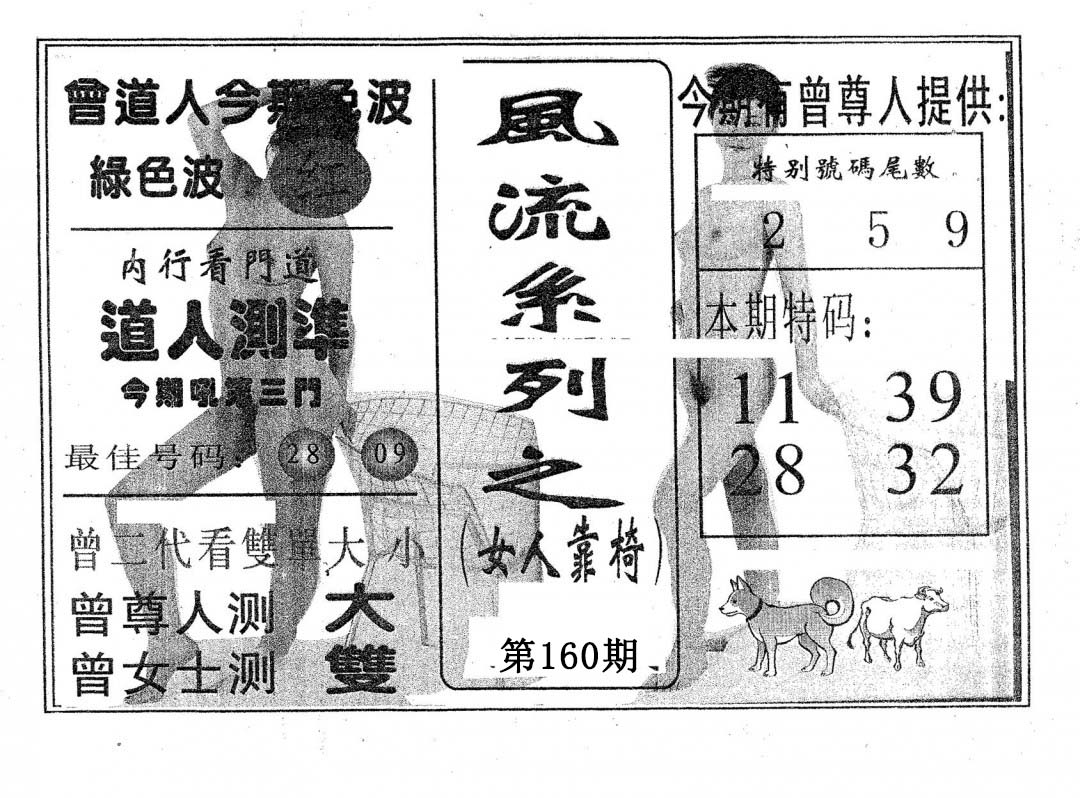 曾道人今期色波
綠色波 红
内行看門道
道人測準
今期吼準三門
最佳号码: 28 09
曾二代看雙單大小
曾尊人测 大
曾女士测 雙
風流系列之
(女人靠椅)
第160期
今期有曾尊人提供:
特别號碼尾數
2 5 9
本期特码:
11 39
28 32